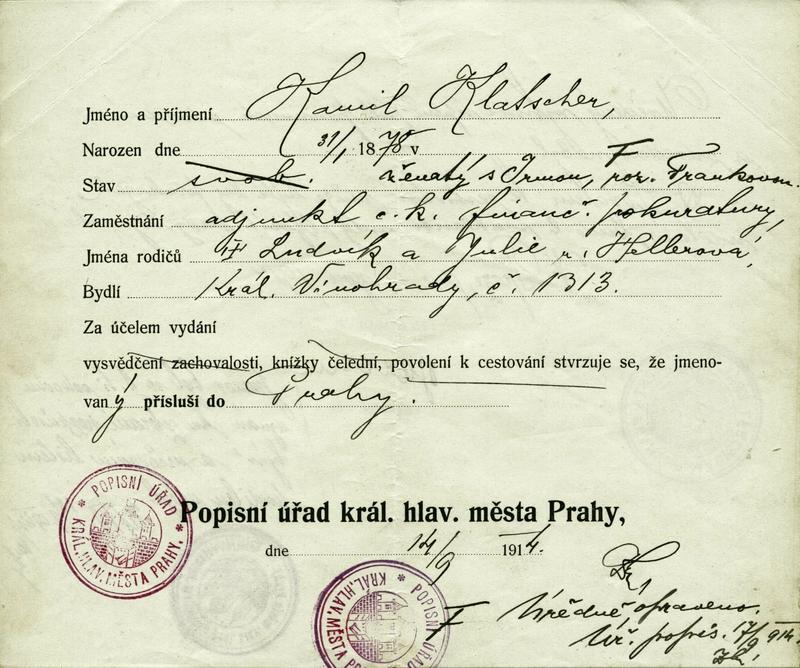 Jméno a příjmení Kamil Klatscher,
Narozen dne 31/1 1878 v
Stav svob. ženatý s Irmou, roz. Frankovou.
Zaměstnání adjunkt c. k. finanč. prokuratury,
Jména rodičů Ludvík a Julie r. Hellerová,
Bydlí Král. Vinohrady, č. 1313.
Za účelem vydání
vysvědčení zachovalosti, knížky čelední, povolení k cestování stvrzuje se, že jmeno-
vaný přísluší do Prahy.
POPISNÍ ÚŘAD
KRÁL. HLAV. MĚSTA PRAHY.
Popisní úřad král. hlav. města Prahy,
dne 14/9 1914.
POPISNÍ ÚŘAD
KRÁL. HLAV. MĚSTA PRAHY
F
Úředně opraveno.
17/9 914